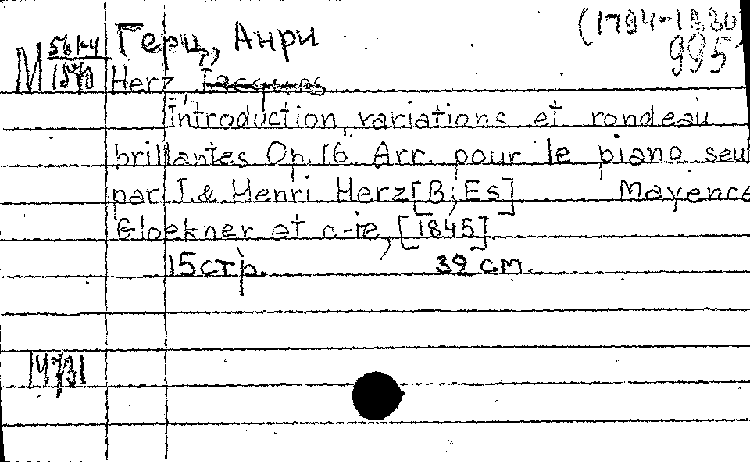 Герц, Анри (1794-1880)
995
М 561-4
Herz, Jacques
Introduction, variations et rondeau
brillantes Op. 16. Arr. pour le piano seul
par J. & Henri Herz [B; Es] Mayence
Gloekner et c-ie, [1845].
15 стр. 39 см.